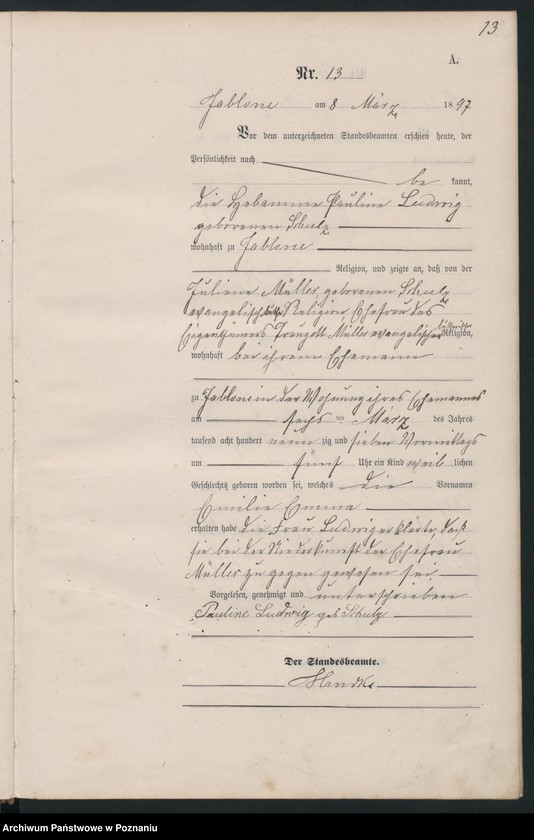 13
A.
Nr. 13
Jablone am 8 März 1897
Vor dem unterzeichneten Standesbeamten erschien heute, der
Persönlichkeit nach
be kannt,
die Hebamme Pauline Ludwig
geborenen Schulz
wohnhaft zu Jablone
Religion, und zeigte an, daß von der
Juliane Müller, geborenen Schulz
evangelisch Religion, Ehefrau des
Eigenthümers Traugott Müller evangelischer Religion,
wohnhaft bei ihrem Ehemann
zu Jablone in der Wohnung ihres Ehemannes
am sechs ten März des Jahres
tausend acht hundert neun zig und sieben Vormittags
um fünf Uhr ein Kind weib lichen
Geschlechts geboren worden sei, welches die Vornamen
Emilie Emma
erhalten habe die Frau Ludwig erklärte, daß
sie bei der Niederkunft der Ehefrau
Müller zu gegen gewesen sei
Vorgelesen, genehmigt und unterschrieben
Pauline Ludwig geb Schulz
Der Standesbeamte.
Archiwum Państwowe w Poznaniu